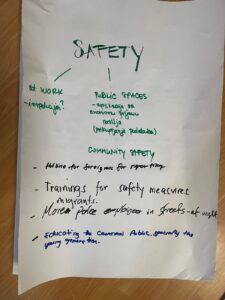 SAFETY
at WORK
- inspekcija?
PUBLIC SPACES
- aplikacija za
anonimnu prijavu
nasilja
(prikupljanje podataka)
COMMUNITY SAFETY
- for foreigners for
- Trainings for safety measures
migrants.
- More police employees in streets - at night
- Educating the General Public, generally the
young generation.